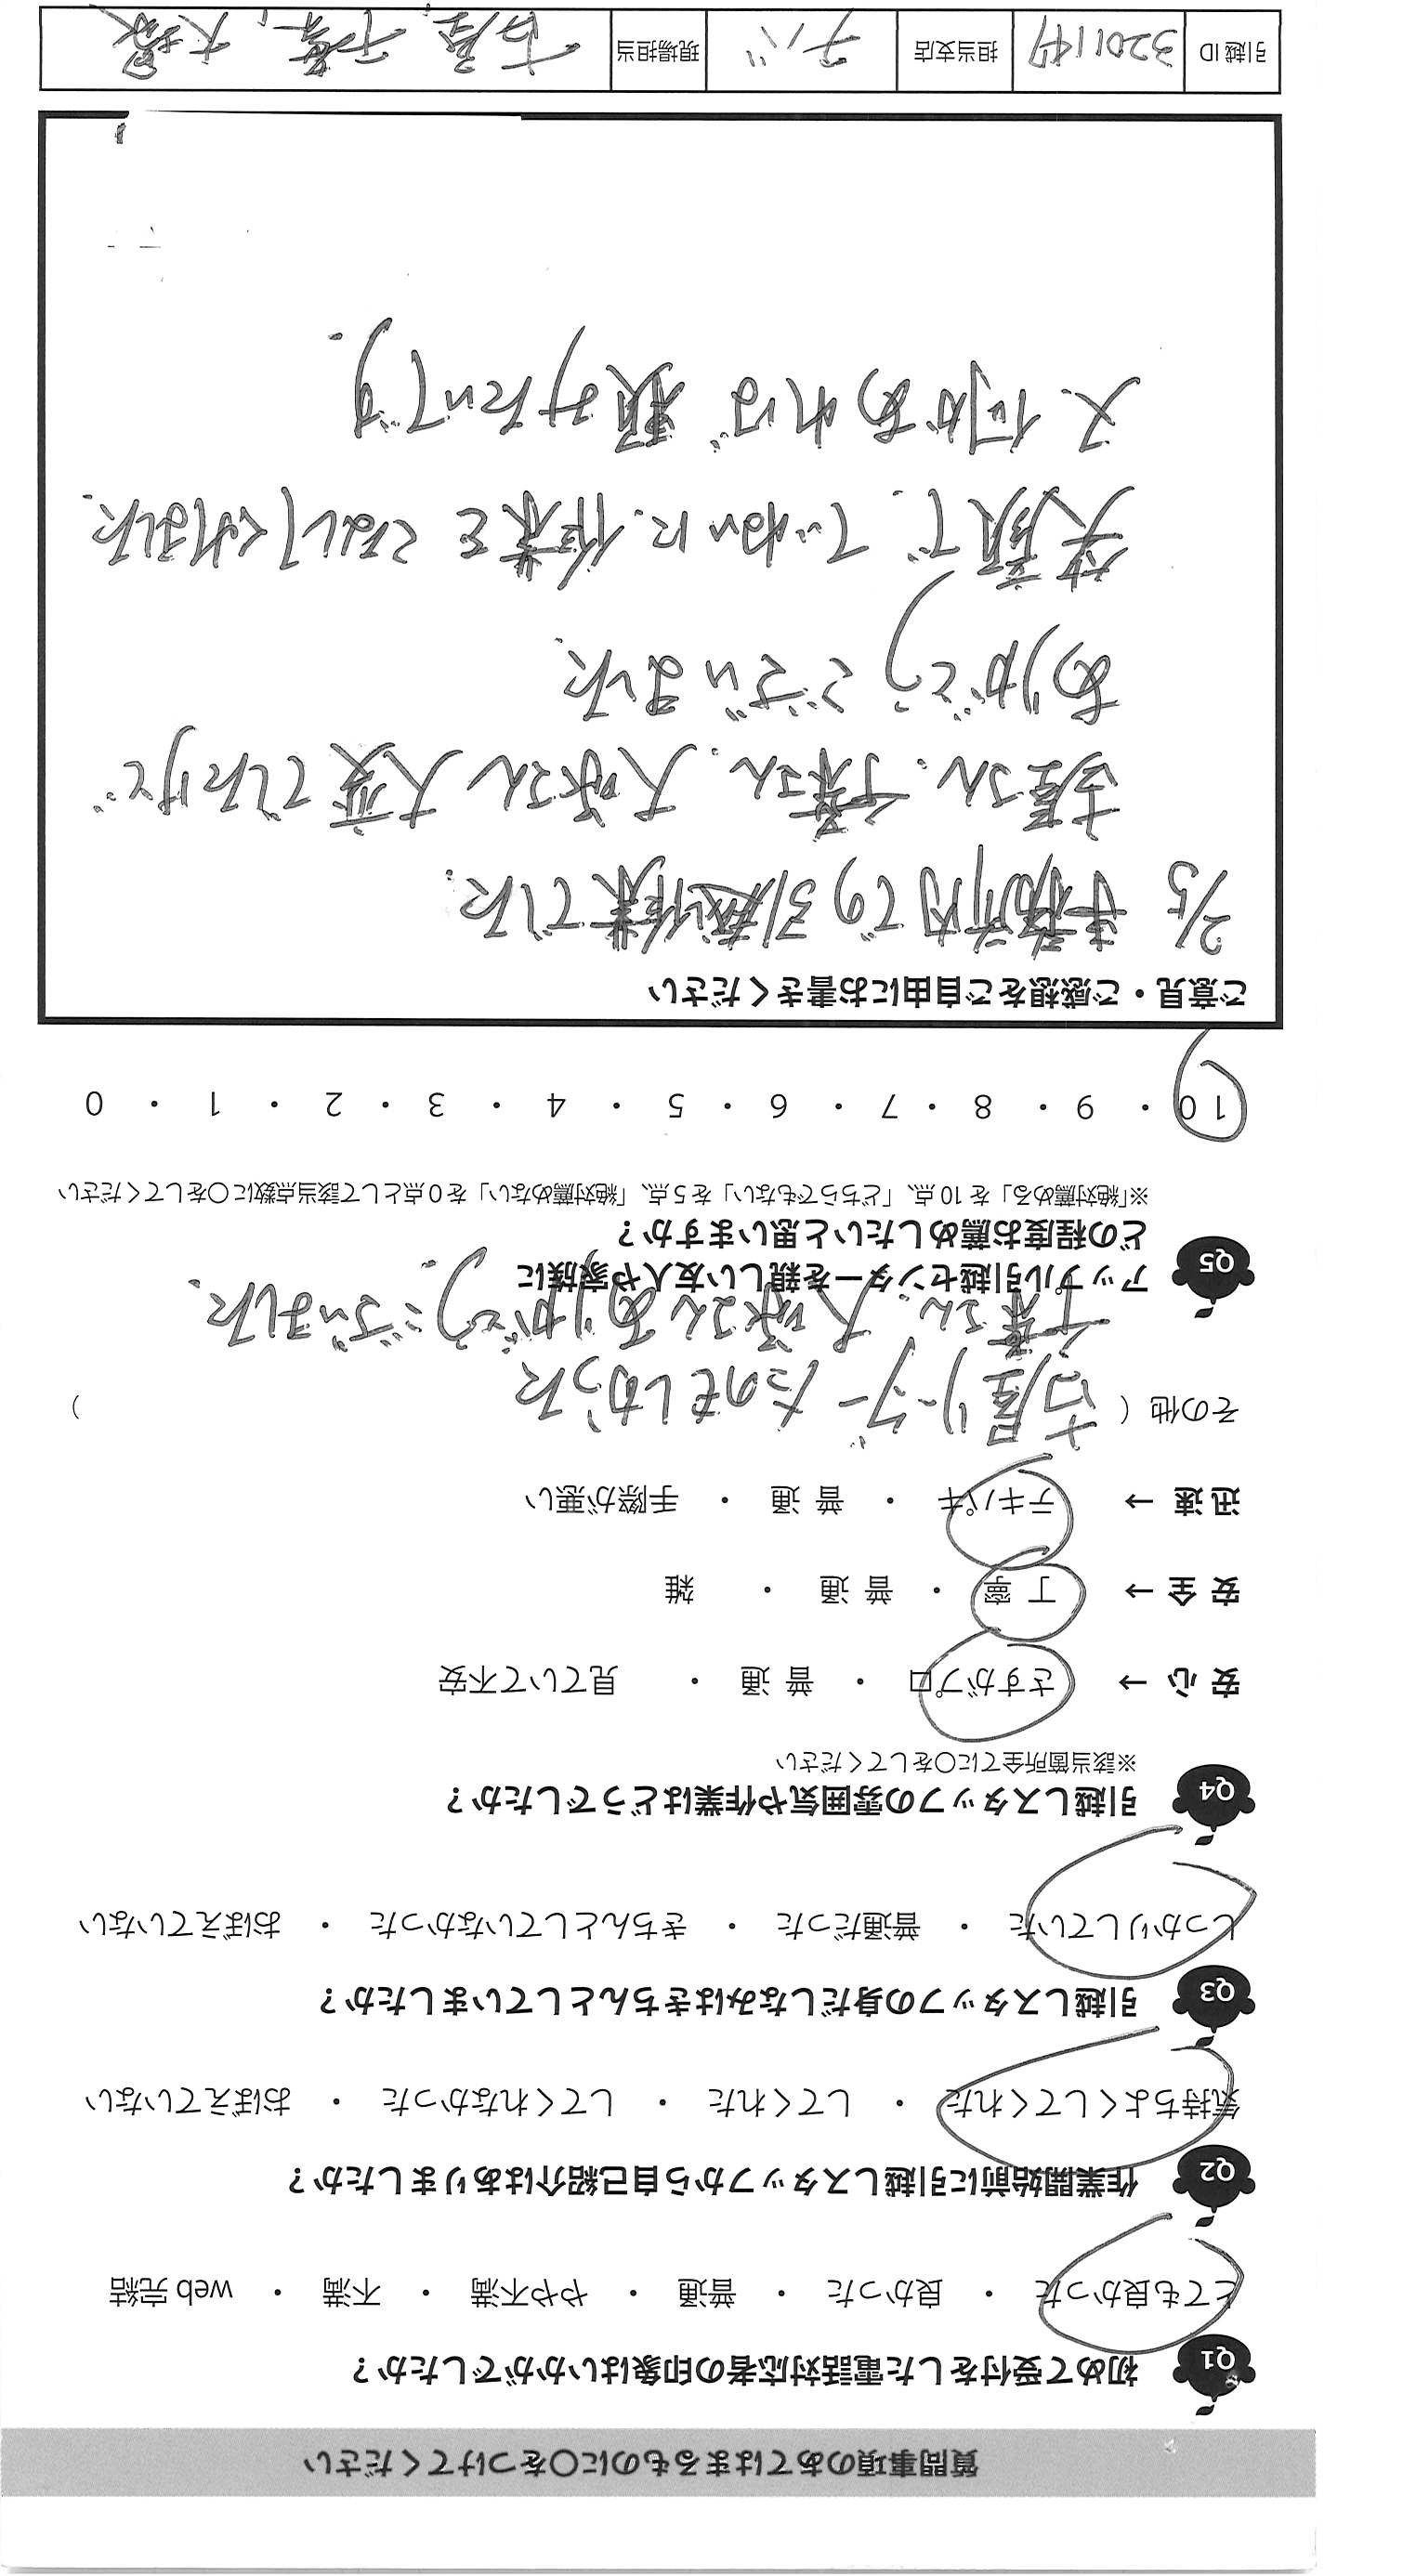 質問事項のあてはまるものに〇をつけてください
Q1 初めて受付をした電話対応者の印象はいかがでしたか？
とても良かった ・ 良かった ・ 普通 ・ やや不満 ・ 不満 ・ web 完結
Q2 作業開始前に引越しスタッフから自己紹介はありましたか？
気持ちよくしてくれた ・ してくれた ・ してくれなかった ・ おぼえていない
Q3 引越しスタッフの身だしなみはきちんとしていましたか？
しっかりしていた ・ 普通だった ・ きちんとしていなかった ・ おぼえていない
Q4 引越しスタッフの雰囲気や作業はどうでしたか？
※該当箇所全てに〇をしてください
安心 → さすがプロ ・ 普通 ・ 見ていて不安
安全 → 丁寧 ・ 普通 ・ 雑
迅速 → テキパキ ・ 普通 ・ 手際が悪い
その他 ( 古屋リーダーたのもしかった )
千葉さん、大塚さんありがとうございました.
Q5 アップル引越センターを親しい友人や家族に
どの程度お薦めしたいと思いますか？
※「絶対薦める」を 10 点、「どちらでもない」を 5 点、「絶対薦めない」を 0 点として該当点数に〇をしてください
10 ・ 9 ・ 8 ・ 7 ・ 6 ・ 5 ・ 4 ・ 3 ・ 2 ・ 1 ・ 0
ご意見・ご感想をご自由にお書きください
2/5 事務所内での引越作業でした.
古屋さん、千葉さん、大塚さん大変でしたけど
ありがとうございました.
笑顔で、ていねいに、作業をこなしてくれました.
又、何かあれば頼みたいです.
引越 ID 3201147 担当支店 チバ 現場担当 古屋, 千葉, 大塚